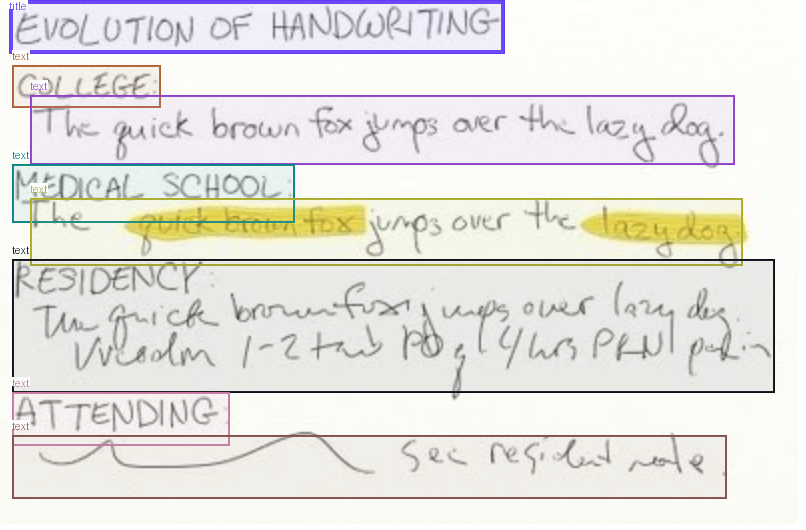 title
EVOLUTION OF HANDWRITING
text
COLLEGE:
text
The quick brown fox jumps over the lazy dog.
text
MEDICAL SCHOOL:
text
The quick brown fox jumps over the lazy dog.
text
RESIDENCY:
The quick brown fox jumps over lazy dog.
Vicodin 1-2 tab PO q 4 hrs PRN pain
text
ATTENDING:
text
See resident note.